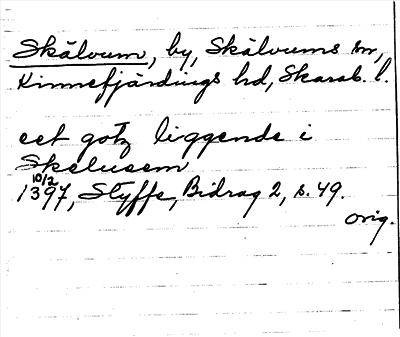 Skälvum, by, Skälvums sn,
Kinnefjärdings hd, Skarab. l.
eet gotz liggende i
Skelusem
10/2
1397, Styffe, Bidrag 2, s. 49.
orig.